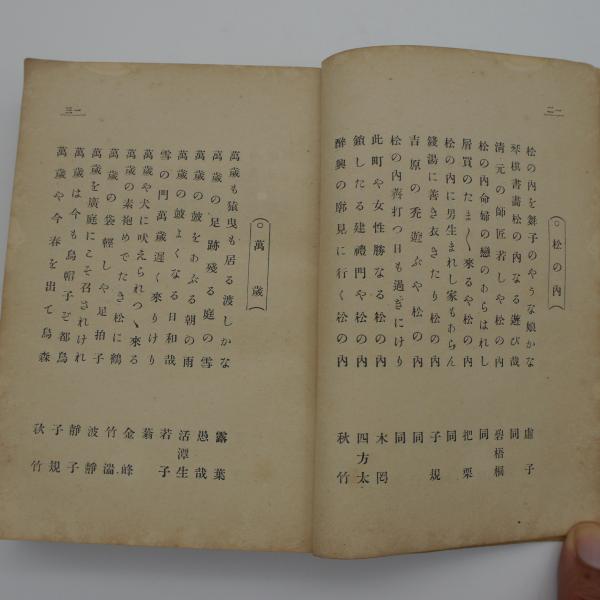 二一
○松の内
松の内を舞子のやうな娘かな 虚子
琴棋書畵松の内なる遊び哉 同
清元の師匠若しや松の内 碧梧桐
松の内命婦の戀のあらはれし 同
屑買のたま〱來るや松の内 把栗
松の内に男生まれし家もあらん 同
錢湯に善き衣きたり松の内 子規
吉原の禿遊ぶや松の内 同
松の内喜打つ日も過ぎにけり 同
此町や女性勝なる松の内 木罔
鎖したる建禮門や松の内 四方太
醉興の廓見に行く松の内 秋竹
三一
○萬歲
萬歲も猿曳も居る渡しかな 露葉
萬歲の足跡殘る庭の雪 愚哉
萬歲の鼓をあぶる朝の雨 活潭生
萬歲の鼓よくなる日和哉 若子
雪の門萬歲遲く來りけり 蒻
萬歲や犬に吠えられつゝ來る 金峰
萬歲の素袍めでたき松に鶴 竹㴞
萬歲の袋輕しや足拍子 波靜
萬歲を廣庭にこそ召されけれ 靜子
萬歲は今も烏帽子ぞ都鳥 子規
萬歲や今春を出て烏森 秋竹